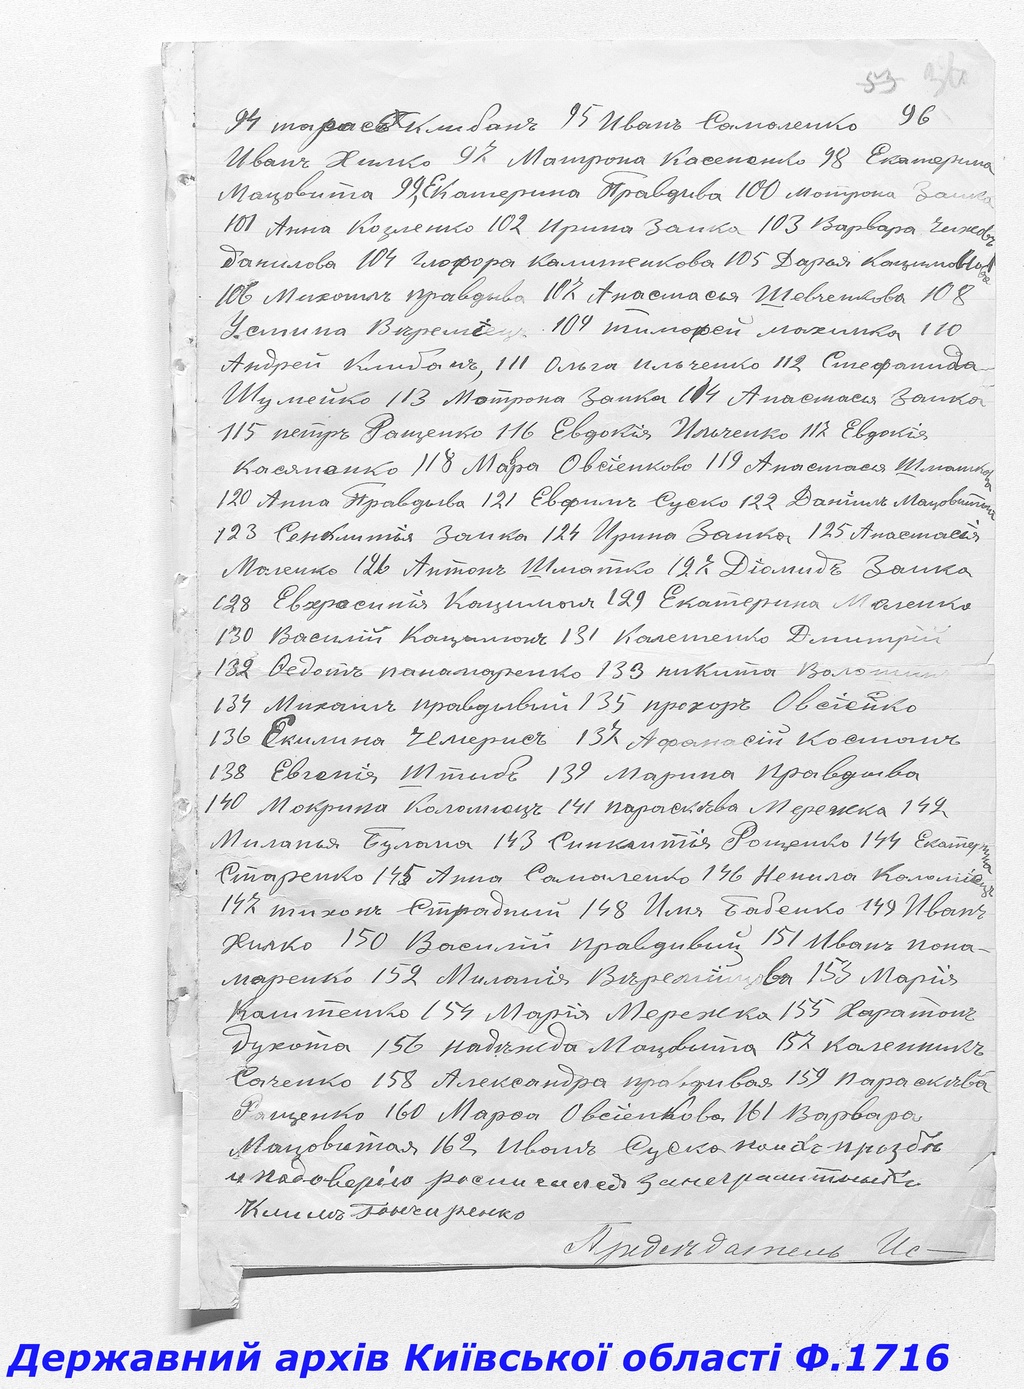 53
94 тарасъ Клибанъ 95 Иванъ Самоленко 96
Иванъ Хилко 97 Матрона Касененко 98 Екатерина
Мацовита 99, Екатерина Правдива 100 Мотрона Заика
101 Анна Козленко 102 Ирина Заика 103 Варвара
Данилова 104 Глофора Калиненкова 105 Дарья
106 Михаилъ правдыва 107 Анастасья Шевченкова 108
Устина 109 тимофей махинка 110
Андрей Клибанъ, 111 Ольга ильченко 112 Стефанида
Шумейко 113 Мотрона Заика 114 Анастасья Заика
115 петръ Ращенко 116 Евдокія Ильченко 117 Евдокія
Касяненко 118 Мара Овсіенково 119 Анастасья Шматкова
120 Анна Правдыва 121 Евфимъ Суско 122 Даніилъ Мацовитый
123 Сенклитія Заика 124 Ирина Заика 125 Анастасія
Маленко 126 Антонъ Шматко 127 Діомидъ Заика
128 Евхросинія Кацимонъ 129 Екатерина Маленко
130 Василій Кацимонъ 131 Калетенко Дмитрій
132 Федотъ панамаренко 133 никита Волошин
134 Михаилъ правдивий 135 прохоръ Овсіейко
136 Екилина Чемерисъ 137 Афанасій Костюкъ
138 Евгенія Штыбъ 139 Марина Правдыва
140 Мокрина Коломіецъ 141 параскѣва Мережка 142
Миланья Булана 143 Синклитія Рощенко 144 Екатерина
Старенко 145 Анна Самоленко 146 Ненила Коломіецъ
147 тихонъ Страдный 148 Илья Бабенко 149 Иванъ
Хилко 150 Василій правдивий 151 Иванъ пона-
маренко 152 Миланія 153 Марія
Калитенко 154 Марія Мережка 155 Харатонъ
Духота 156 надежда Мацовита 157 каленникъ
Саченко 158 Александра правдивая 159 параскѣва
Ращенко 160 Марфа Овсіенкова 161 Варвара
Мацовитая 162 Иванъ Суско по ихъ прозбѣ
и подоверію росписался за неграмотныхъ
Климъ Гончаренко
Предсѣдатель Ис—
Державний архів Київської області Ф.1716